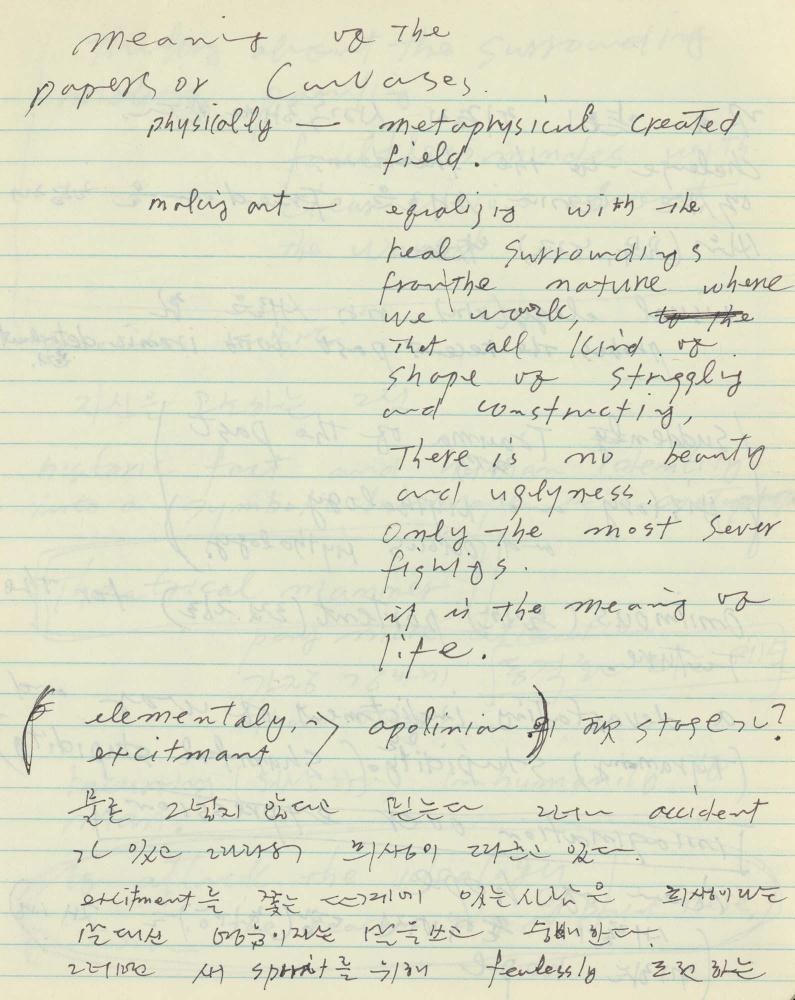 meaning of the
papers or Canvases.
physically — metaphysical created
field.
making art — equalizig with the
real surroundings
from the nature where
we work, to the
That all kind of
shape of strugglig
and constructig,
There is no beauty
and uglyness.
Only the most sever
fightigs.
it is the meanig of
life.
( elementaly, apolinian ) stage 가?
excitmant
물론 그렇지 않다고 믿는다 그러나 accident
가 있고 희생이 따르고 있다.
excitment를 쫓는 있는 사람은 희생이라는
말 대신 말을 쓰고 숭배한다.
그러면 새 spirit를 위해 fearlessly 도전하는